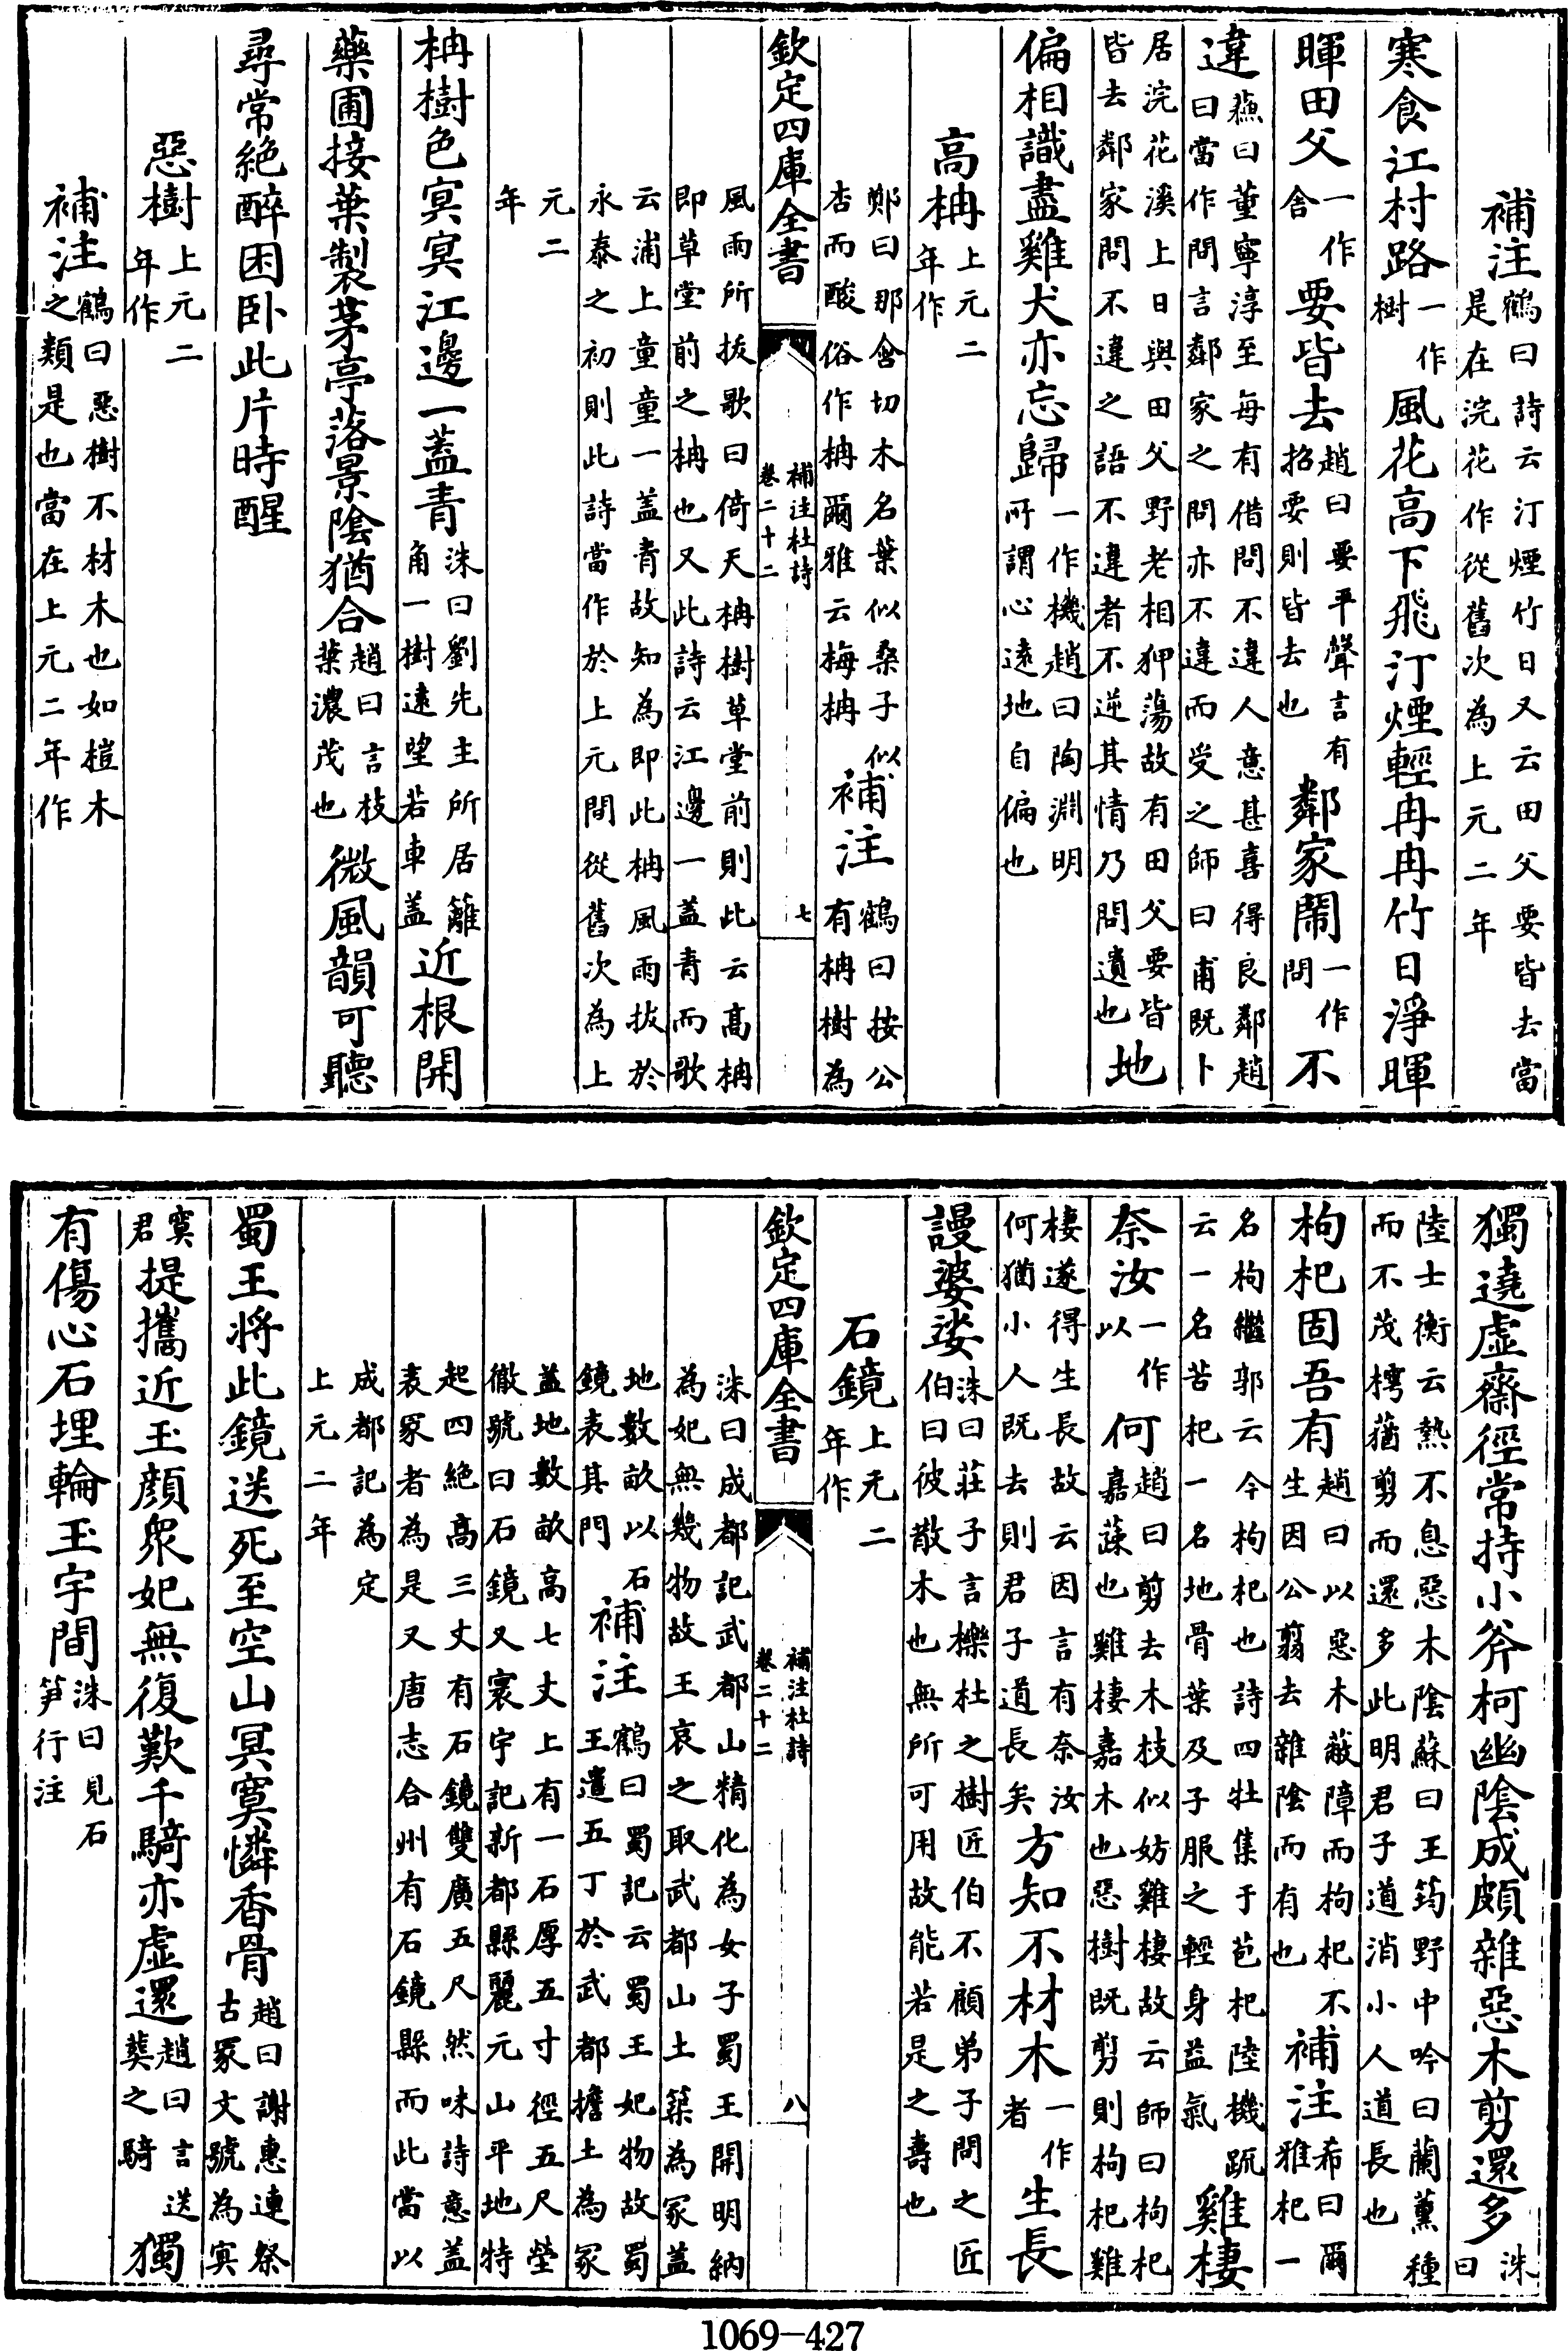 補注鶴曰詩云汀煙竹日又云田父要皆去當
是在浣花作從舊次為上元二年
寒食江村路一作樹風花高下飛汀煙輕冉冉竹日淨暉
暉田父一作舍要皆去趙曰要平聲言有招要則皆去也鄰家鬧一作問不
違蘇曰董寧淳至每有借問不違人意甚喜得良鄰趙
曰當作問言鄰家之問亦不違而受之師曰甫既卜
居浣花溪上日與田父野老相狎蕩故有田父要皆
皆去鄰家問不違之語不違者不逆其情乃問遺也地
偏相識盡雞犬亦忘歸一作機趙曰陶淵明所謂心遠地自偏也
高柟上元二年作
鄭曰那含切木名葉似桑子似
杏而酸俗作柟爾雅云梅柟補注鶴曰按公有柟樹為
欽定四庫全書
補注杜詩
卷二十二
七
風雨所拔歌曰倚天柟樹草堂前則此云高柟
即草堂前之柟也又此詩云江邊一蓋青而歌
云浦上童童一蓋青故知為即此柟風雨拔於
永泰之初則此詩當作於上元間從舊次為上
元二
年
柟樹色冥冥江邊一蓋青洙曰劉先主所居籬角一樹遠望若車蓋近根開
藥圃接葉製茅亭落景陰猶合趙曰言枝葉濃茂也微風韻可聽
尋常絶醉困卧此片時醒
惡樹上元二年作
補注鶴曰惡樹不材木也如榿木
之類是也當在上元二年作
獨遶虛齋徑常持小斧柯幽陰成頗雜惡木剪還多洙曰
陸士衡云熱不息惡木陰蘇曰王筠野中吟曰蘭薰種
而不茂樗蕕剪而還多此明君子道消小人道長也
枸杞固吾有趙曰以惡木蔽障而枸杞不生因公翦去雜陰而有也補注希曰爾雅杞一
名枸繼郭云今枸杞也詩四牡集于苞杞陸機疏
云一名苦杞一名地骨葉及子服之輕身益氣雞棲
奈汝一作以何趙曰剪去木枝似妨雞棲故云師曰枸杞
嘉蔬也雞棲嘉木也惡樹既剪則枸杞雞
棲遂得生長故云因言有奈汝
何猶小人既去則君子道長矣方知不材木一作者生長
謾婆娑洙曰莊子言櫟杜之樹匠伯不顧弟子問之匠
伯曰彼散木也無所可用故能若是之壽也
石鏡上元二年作
欽定四庫全書
補注杜詩
卷二十二
八
洙曰成都記武都山精化為女子蜀王開明納
為妃無幾物故王哀之取武都山土築為冢蓋
地數畝以石
鏡表其門補注鶴曰蜀記云蜀王妃物故蜀王遣五丁於武都擔土為冢
蓋地數畝高七丈上有一石厚五寸徑五尺瑩
徹號曰石鏡又寰宇記新都縣麗元山平地特
起四絶高三丈有石鏡雙廣五尺然味詩意蓋
表冢者為是又唐志合州有石鏡縣而此當以
成都記為定
上元二年
蜀王將此鏡送死至空山冥寞憐香骨趙曰謝惠連祭古冢文號為冥
寞君提攜近玉顔衆妃無復歎千騎亦虛還趙曰言送葬之騎獨
有傷心石埋輪玉宇間洙曰見石笋行注
1069-427